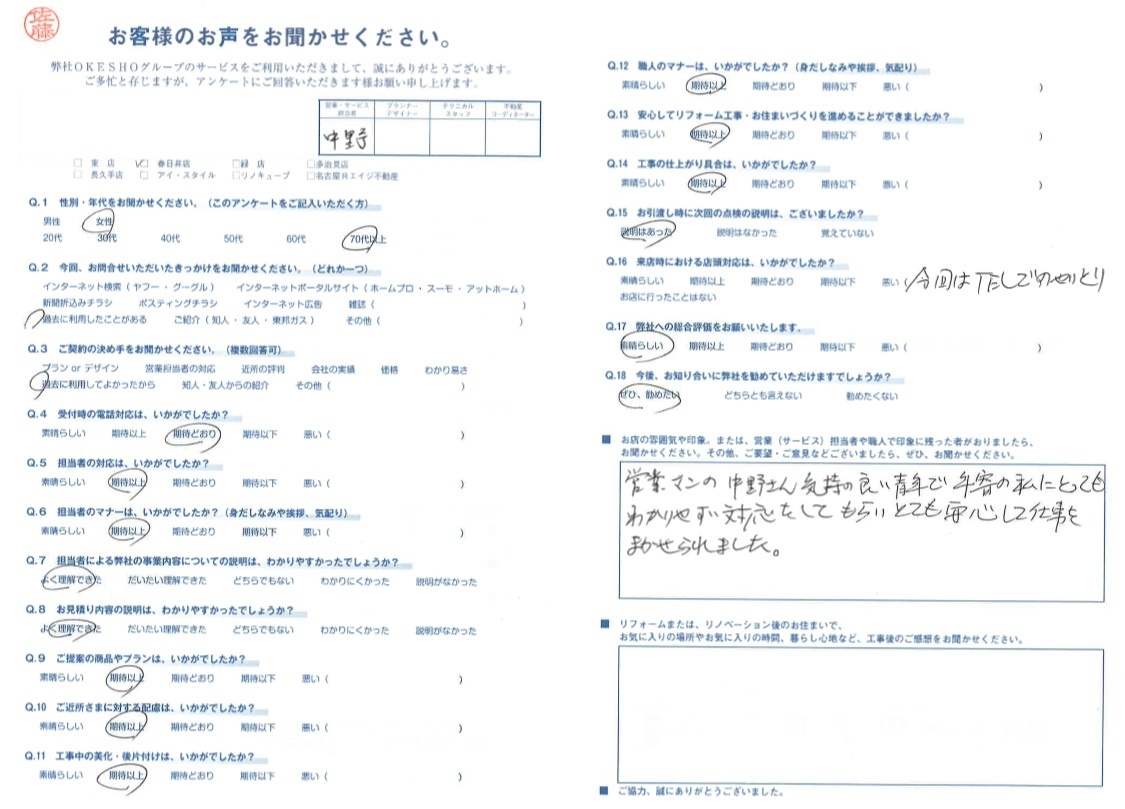 佐藤
お客様のお声をお聞かせください。
弊社OKESHOグループのサービスをご利用いただきまして、誠にありがとうございます。
ご多忙と存じますが、アンケートにご回答いただきます様お願い申し上げます。
営業・サービス担当者 プランナーデザイナー テクニカルスタッフ 不動産コーディネーター
中野
□ 東 店 ☑ 春日井店 □緑 店 □多治見店
□ 長久手店 □ アイ・スタイル □リノキューブ □名古屋Rエイジ不動産
Q.1 性別・年代をお聞かせください。(このアンケートをご記入いただく方)
男性 女性
20代 30代 40代 50代 60代 70代以上
Q.2 今回、お問合せいただいたきっかけをお聞かせください。(どれか一つ)
インターネット検索(ヤフー・グーグル) インターネットポータルサイト(ホームプロ・スーモ・アットホーム)
新聞折込みチラシ ポスティングチラシ インターネット広告 雑誌( )
過去に利用したことがある ご紹介(知人・友人・東邦ガス) その他( )
Q.3 ご契約の決め手をお聞かせください。(複数回答可)
プラン or デザイン 営業担当者の対応 近所の評判 会社の実績 価格 わかり易さ
過去に利用してよかったから 知人・友人からの紹介 その他( )
Q.4 受付時の電話対応は、いかがでしたか?
素晴らしい 期待以上 期待どおり 期待以下 悪い( )
Q.5 担当者の対応は、いかがでしたか?
素晴らしい 期待以上 期待どおり 期待以下 悪い( )
Q.6 担当者のマナーは、いかがでしたか?(身だしなみや挨拶、気配り)
素晴らしい 期待以上 期待どおり 期待以下 悪い( )
Q.7 担当者による弊社の事業内容についての説明は、わかりやすかったでしょうか?
よく理解できた だいたい理解できた どちらでもない わかりにくかった 説明がなかった
Q.8 お見積り内容の説明は、わかりやすかったでしょうか?
よく理解できた だいたい理解できた どちらでもない わかりにくかった 説明がなかった
Q.9 ご提案の商品やプランは、いかがでしたか?
素晴らしい 期待以上 期待どおり 期待以下 悪い( )
Q.10 ご近所さまに対する配慮は、いかがでしたか?
素晴らしい 期待以上 期待どおり 期待以下 悪い( )
Q.11 工事中の美化・後片付けは、いかがでしたか?
素晴らしい 期待以上 期待どおり 期待以下 悪い( )
Q.12 職人のマナーは、いかがでしたか?(身だしなみや挨拶、気配り)
素晴らしい 期待以上 期待どおり 期待以下 悪い( )
Q.13 安心してリフォーム工事・お住まいづくりを進めることができましたか?
素晴らしい 期待以上 期待どおり 期待以下 悪い( )
Q.14 工事の仕上がり具合は、いかがでしたか?
素晴らしい 期待以上 期待どおり 期待以下 悪い( )
Q.15 お引渡し時に次回の点検の説明は、ございましたか?
説明はあった 説明はなかった 覚えていない
Q.16 来店時における店頭対応は、いかがでしたか?
素晴らしい 期待以上 期待どおり 期待以下 悪い( 今回はTELでのやりとり
お店に行ったことはない
Q.17 弊社への総合評価をお願いいたします。
素晴らしい 期待以上 期待どおり 期待以下 悪い( )
Q.18 今後、お知り合いに弊社を勧めていただけますでしょうか?
ぜひ、勧めたい どちらとも言えない 勧めたくない
■ お店の雰囲気や印象。または、営業(サービス)担当者や職人で印象に残った者がおりましたら、
お聞かせください。その他、ご要望・ご意見などございましたら、ぜひ、お聞かせください。
営業マンの中野さん気持の良い青年で年寄の私にとっても
わかりやすい対応をしてもらいとても安心して仕事を
まかせられました。
■ リフォームまたは、リノベーション後のお住まいで、
お気に入りの場所やお気に入りの時間、暮らし心地など、工事後のご感想をお聞かせください。
■ ご協力、誠にありがとうございました。